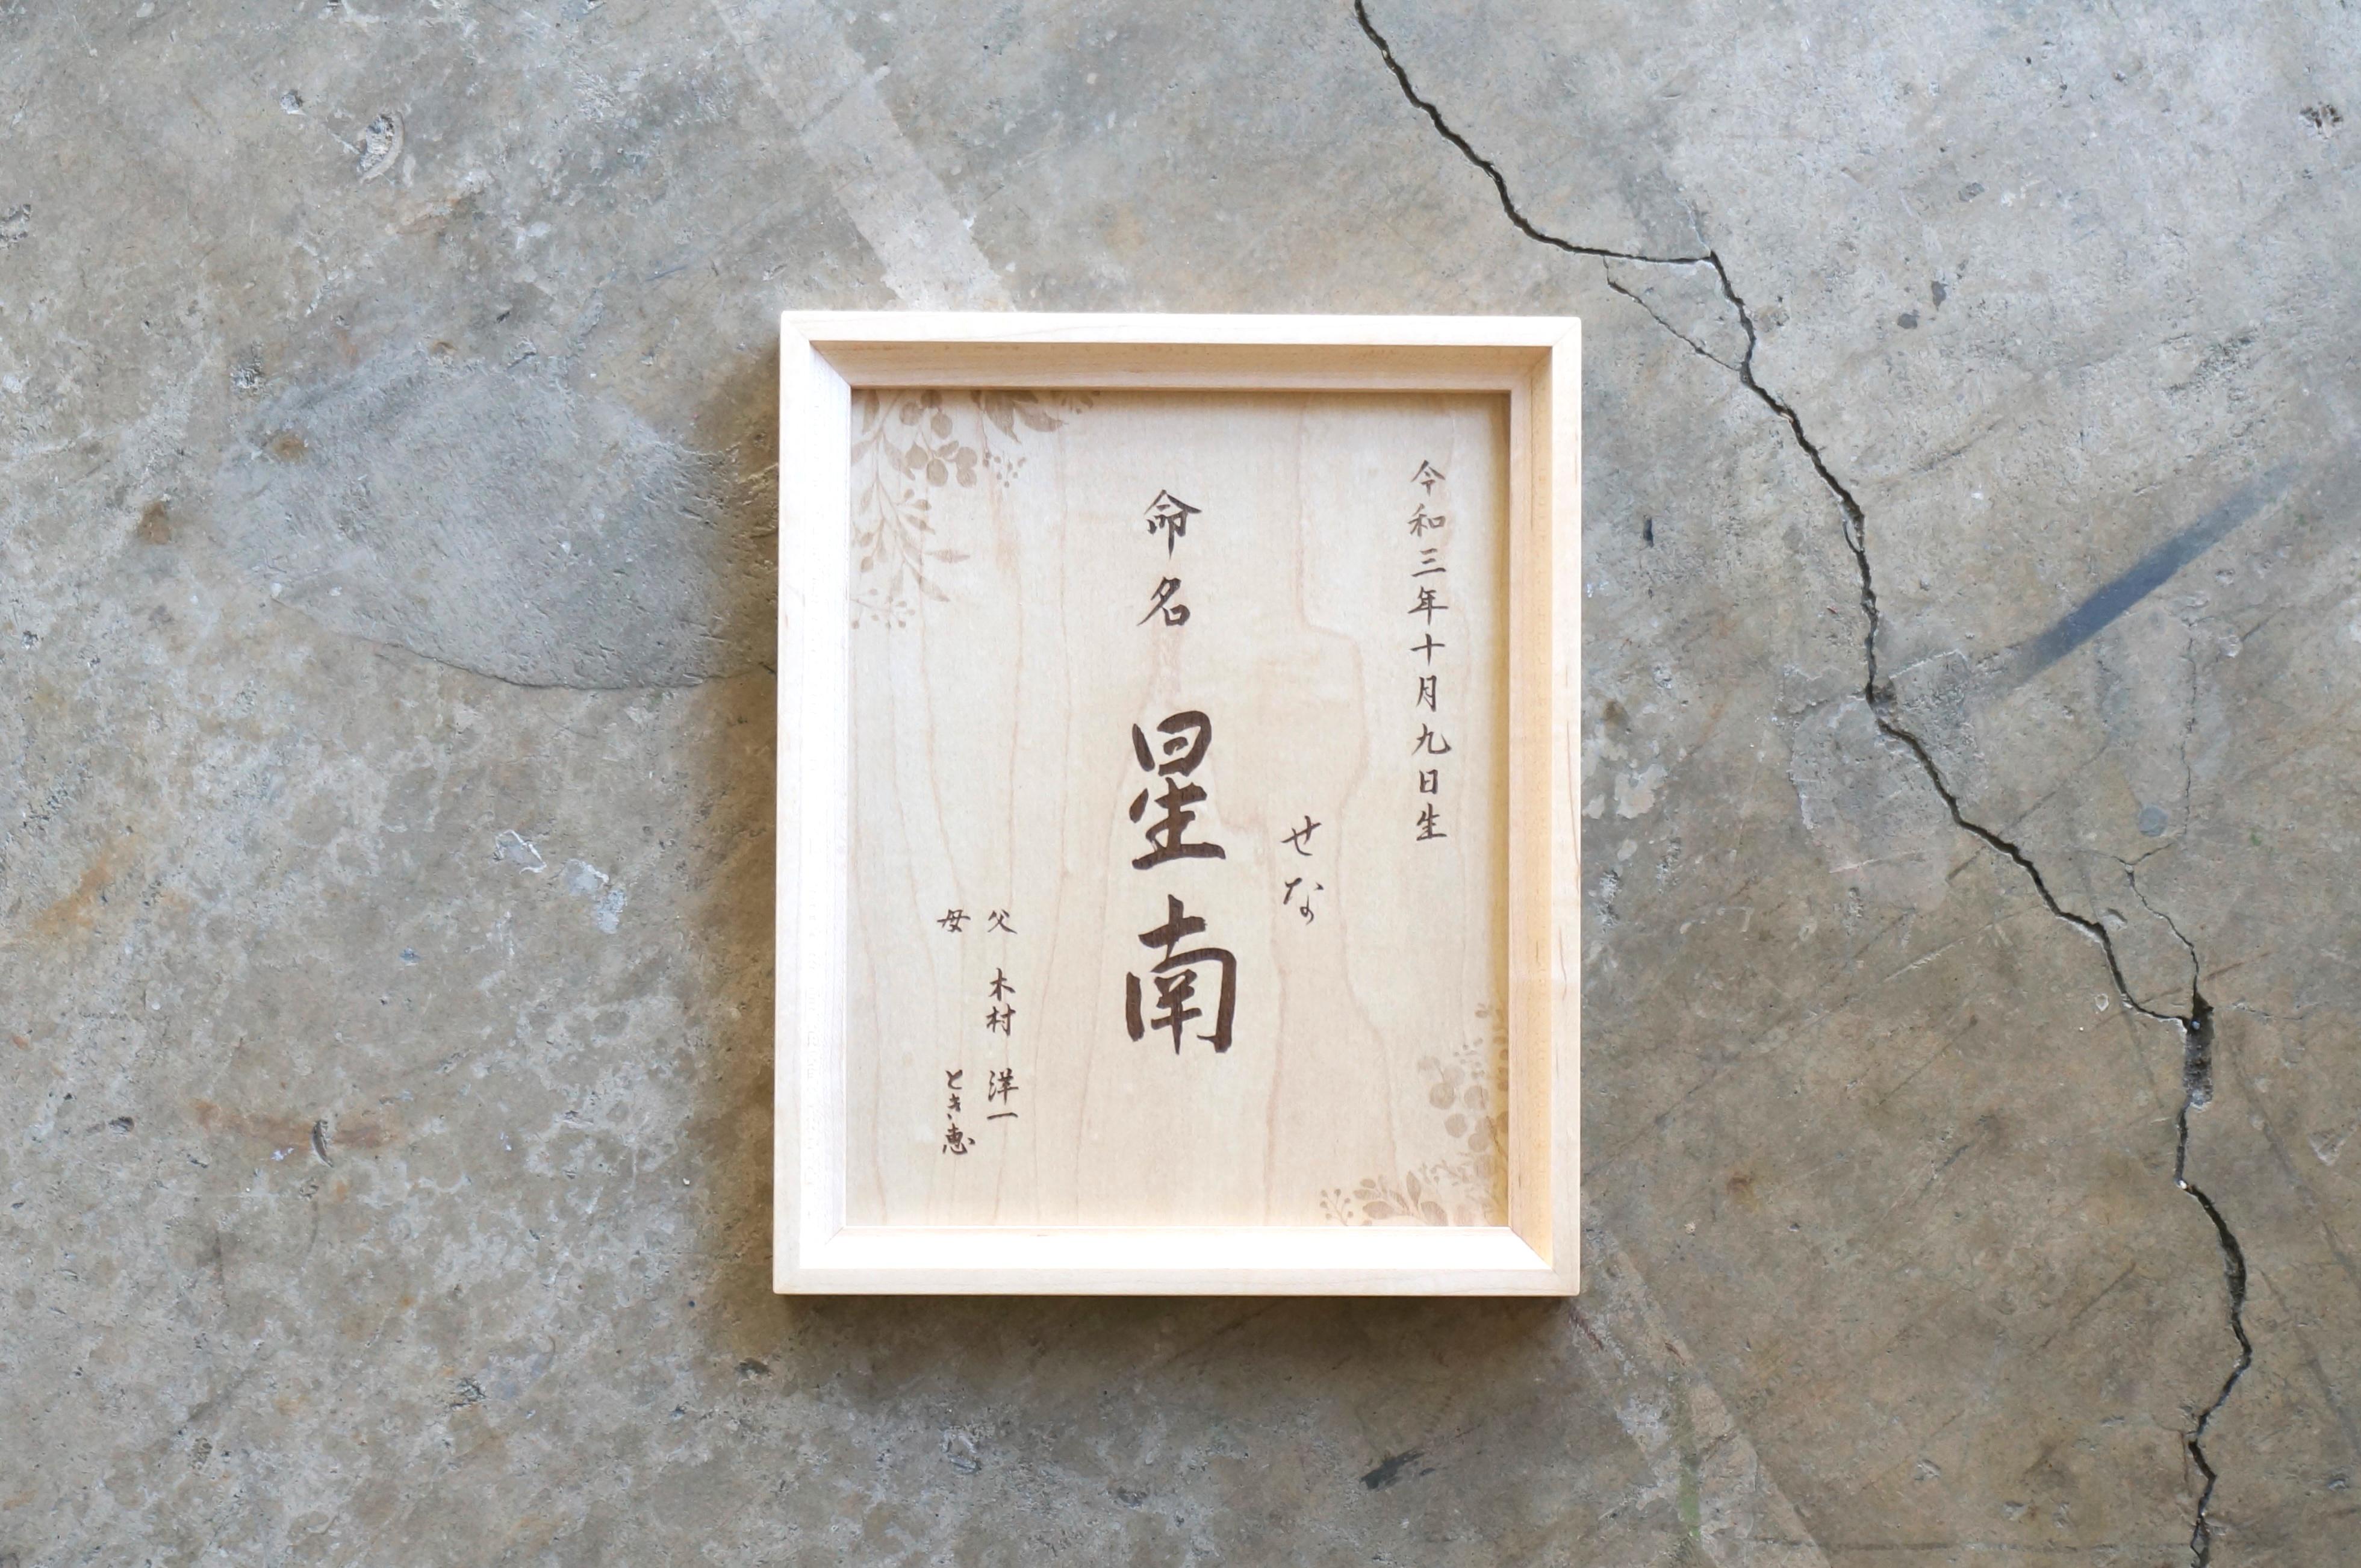 令和三年十月九日生
せな
命名
星南
父 木村 洋一
母 とき恵